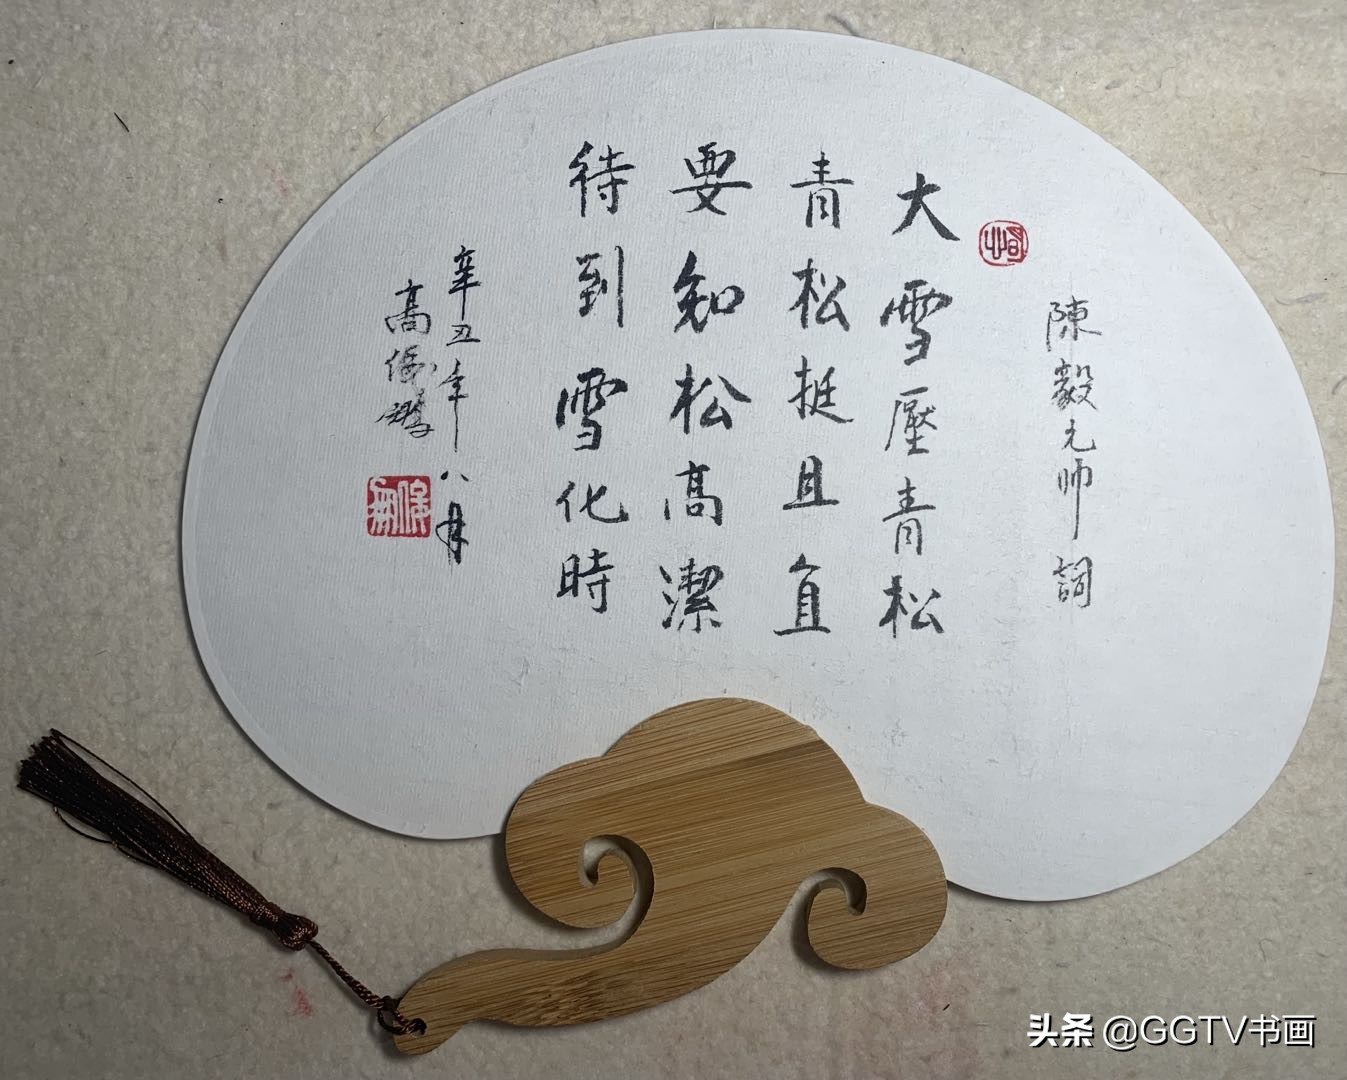 陳毅元帅詞
大雪壓青松
青松挺且直
要知松高潔
待到雪化時
辛丑年八月
高
头条 @GGTV书画